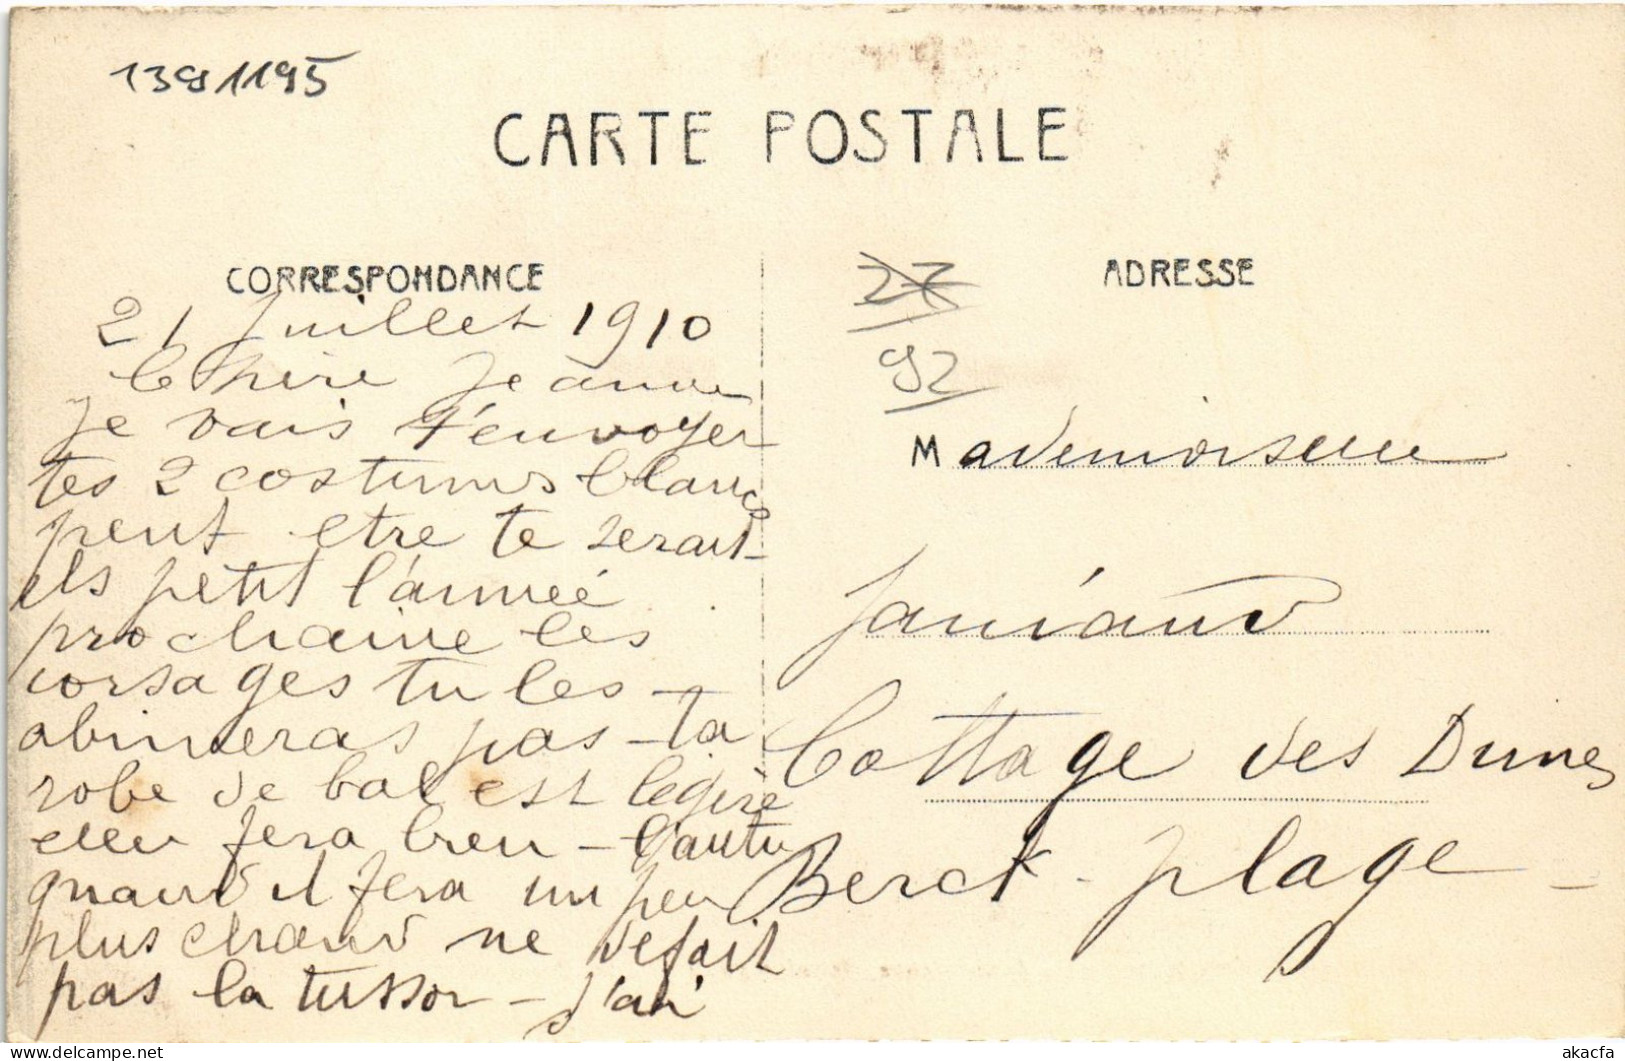 1391195
CARTE POSTALE
CORRESPONDANCE
21 Juillet 1910
Chère Jeanne
je vais t'envoyer
tes 2 costumes blancs
peut etre te serait
ils petit l'année
prochaine les
corsages tu les
abimeras pas - ta
robe de bal est légère
elle fera bien - l'autre
quand il fera un peu
plus chaud ne defait
pas la tussor - j'ai
27
92
ADRESSE
Mademoiselle
Cottage des Dunes
Berck - plage -
akacfa